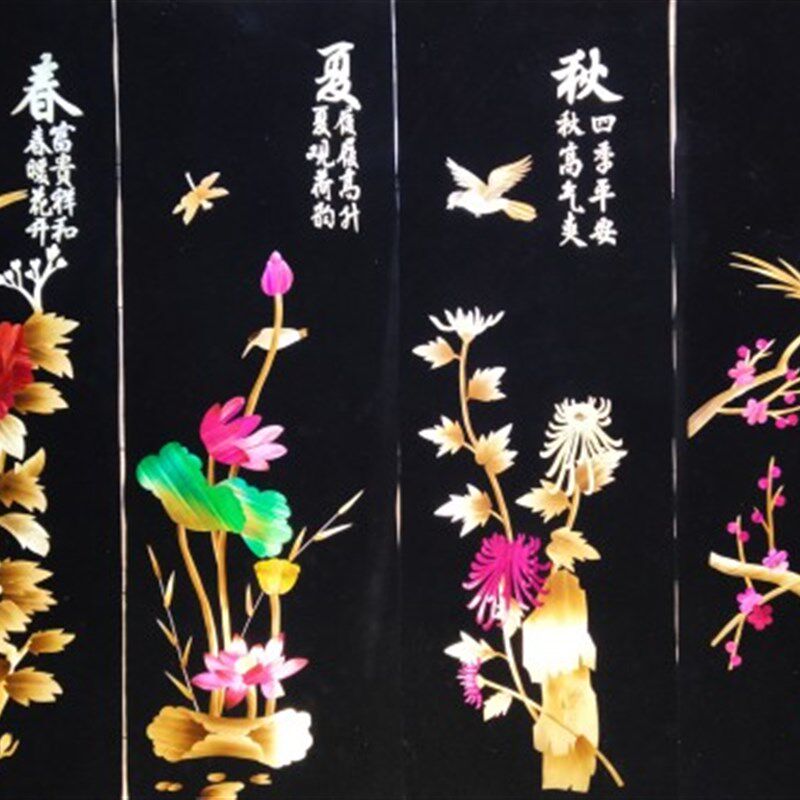 春
富贵祥和
春暖花开
夏
履履高升
夏观荷韵
秋
四季平安
秋高气爽